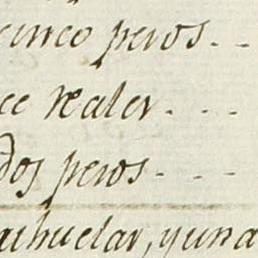 cinco pesos. - -
ce reales. - - -
dos pesos - - -
aihuelas, y una